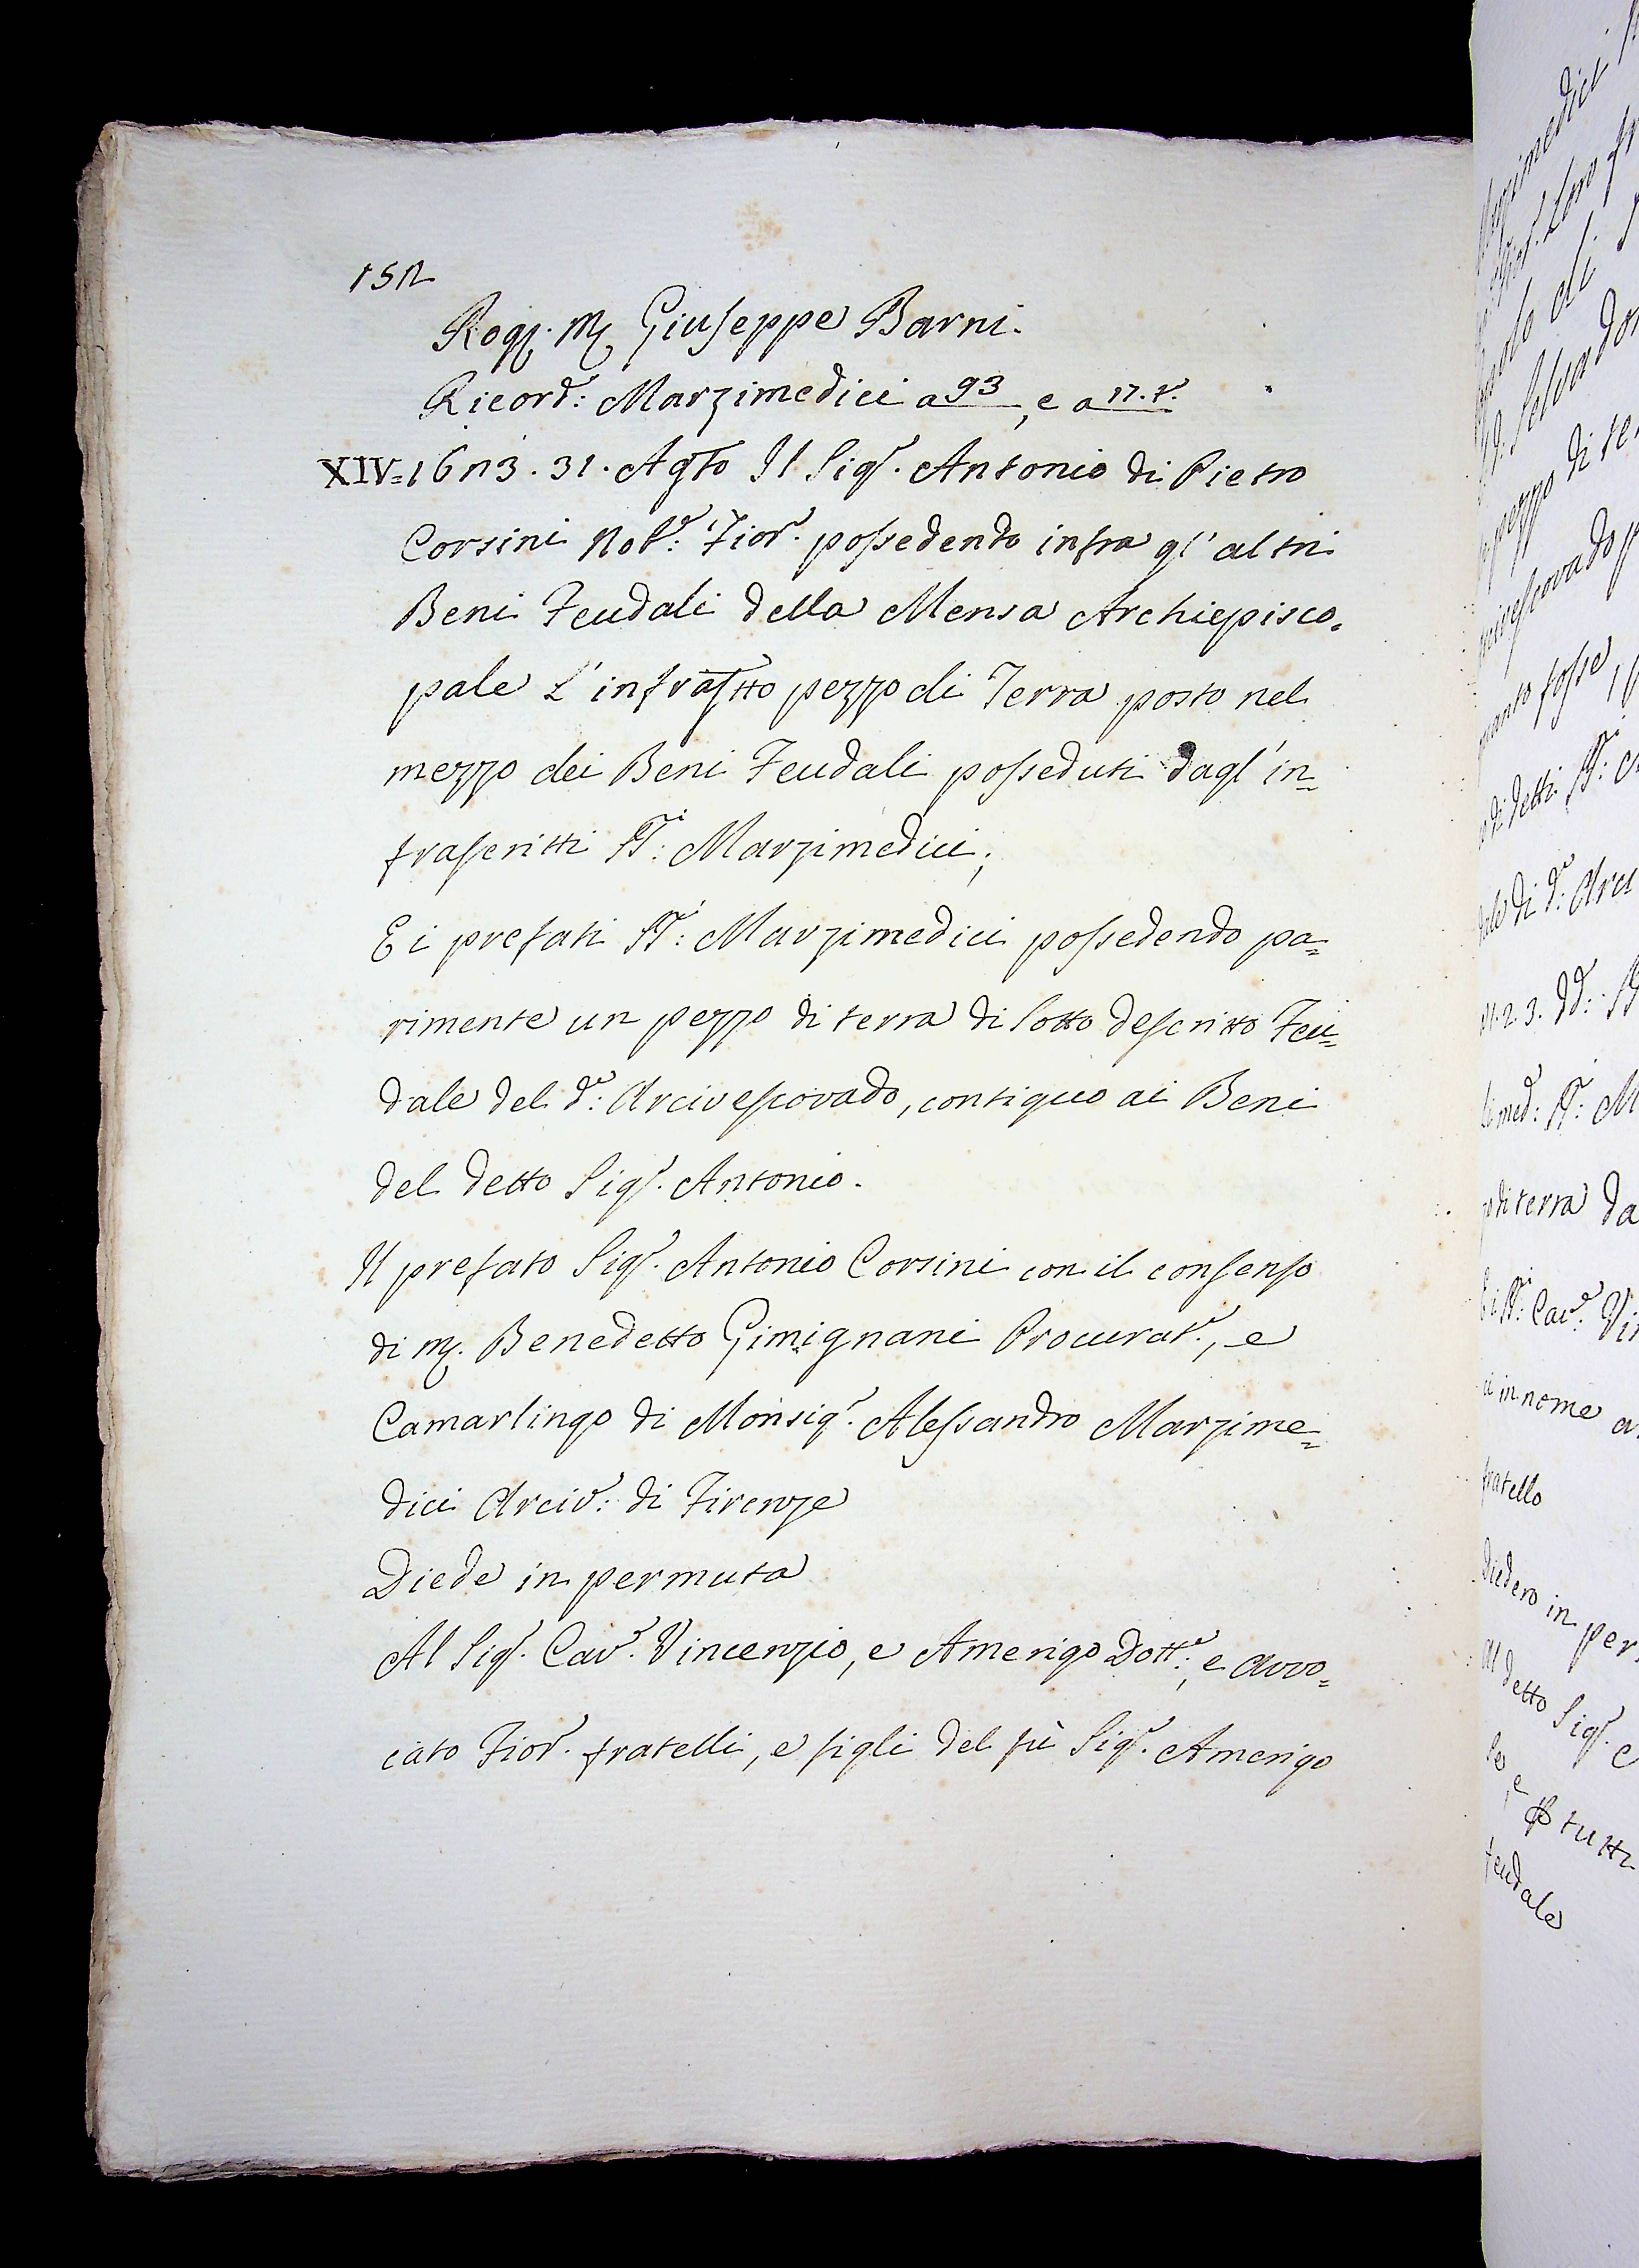 152
Rogg. M. Giuseppe Barni.
Ricord.: Marzimedici a 93, e a
XIV=1623. 31. Agto Il Sigr. Antonio di Pietro
Corsini Nob.e: Fior. possedendo infra gl'altri
Beni Feudali della Mensa Archiepisco=
pale l'infratto pezzo di Terra posto nel
mezzo dei Beni Feudali posseduti dagl'in=
frascritti SS.i: Marzimedici;
E i prefati SS.i: Marzimedici possedendo pa=
rimente un pezzo di terra di sotto descritto Feu=
dale del d.o: Arcivescovado, contiguo ai Beni
del detto Sigr. Antonio.
Il prefato Sigr. Antonio Corsini con il consenso
di M. Benedetto Gimignani Procurat.e, e
Camarlingo di Monsigr. Alessandro Marzime=
dici Arciv.: di Firenze
Diede in permuta
Al Sigr. Cav.e Vincenzio, e Amerigo Dott.e; e Avvo=
cato Fior. fratelli, e figli del fù Sigr. Amerigo
pezzo di te
quanto fosse
di detti SS.i:
1. 2. 3. dd.:
di med: SS.i: M
di terra da
SS.i: Cav.e: Vi
in nome
fratello
Diedero in per
Al detto Sigr. C
e tutti
feudale